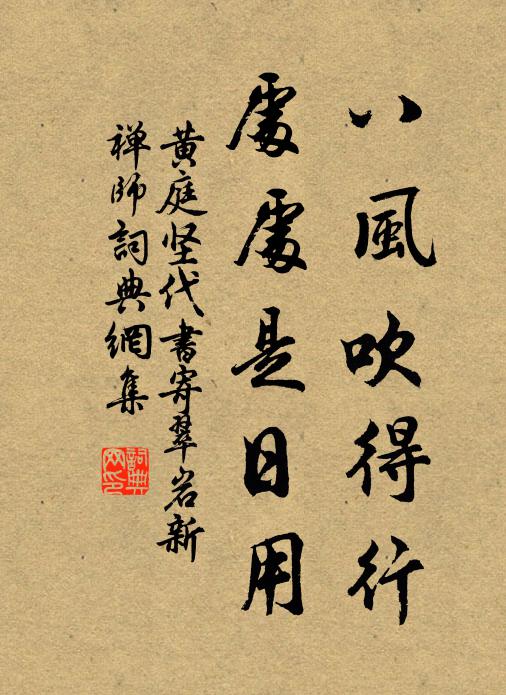 八風吹得行
處處是日用
黃庭坚代書寄翠岩新
禅師詞典網集
詞典
网印